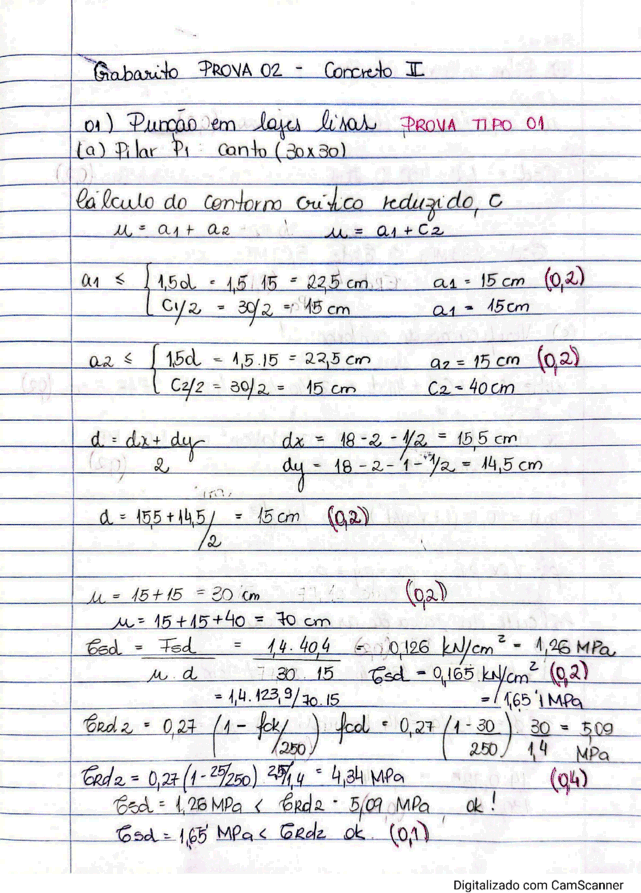 Gabarito PROVA 02 - Concreto II
01) Punção em lajes lisas PROVA TIPO 01
(a) Pilar P1: canto (30x30)
Cálculo do contorno crítico reduzido, C
u = a1 + a2 u = a1 + C2
a1 ≤ { 1,5d = 1,5.15 = 22,5 cm a1 = 15 cm (0,2)
C1/2 = 30/2 = 15 cm a1 = 15cm
a2 ≤ { 1,5d = 1,5.15 = 22,5 cm a2 = 15 cm (0,2)
C2/2 = 30/2 = 15 cm C2 = 40cm
d = dx + dy / 2 dx = 18 - 2 - 1/2 = 15,5 cm
dy = 18 - 2 - 1 - 1/2 = 14,5 cm
d = 15,5 + 14,5 / 2 = 15 cm (0,2)
u = 15 + 15 = 30 cm (0,2)
u = 15 + 15 + 40 = 70 cm
τsd = Fsd / u.d = 1,4.40,4 / 30.15 = 0,126 kN/cm² = 1,26 MPa
τsd = 0,165 kN/cm² (0,2)
= 1,4.123,9/70.15 = 1,65 MPa
τRd2 = 0,27 (1 - fck/250) fcd = 0,27 (1 - 30/250) 30/1,4 = 5,09 MPa
τRd2 = 0,27 (1 - 25/250) 25/1,4 = 4,34 MPa (0,4)
τsd = 1,26 MPa < τRd2 = 5,09 MPa ok!
τsd = 1,65 MPa < τRd2 ok. (0,1)
Digitalizado com CamScanner